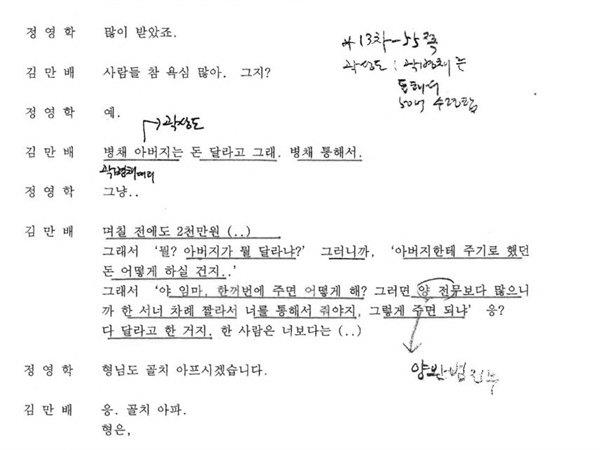 정 영 학 많이 받았죠.
*13차-55쪽
김 만 배 사람들 참 욕심 많아. 그지?
곽상도 : 곽병채는
통해서
50억 수급함
정 영 학 예.
→곽상도
김 만 배 병채 아버지는 돈 달라고 그래. 병채 통해서.
곽병채
정 영 학 그냥..
김 만 배 며칠 전에도 2천만원 (..)
그래서 '뭘? 아버지가 뭘 달라냐?' 그러니까, '아버지한테 주기로 했던
돈 어떻게 하실 건지..'
그래서 '야 임마, 한꺼번에 주면 어떻게 해? 그러면 양 전무보다 많으니
까 한 서너 차례 짤라서 너를 통해서 줘야지, 그렇게 주면 되냐' 응?
다 달라고 한 거지. 한 사람은 너보다는 (..)
정 영 학 형님도 골치 아프시겠습니다.
양 전무
김 만 배 응. 골치 아파.
형은,